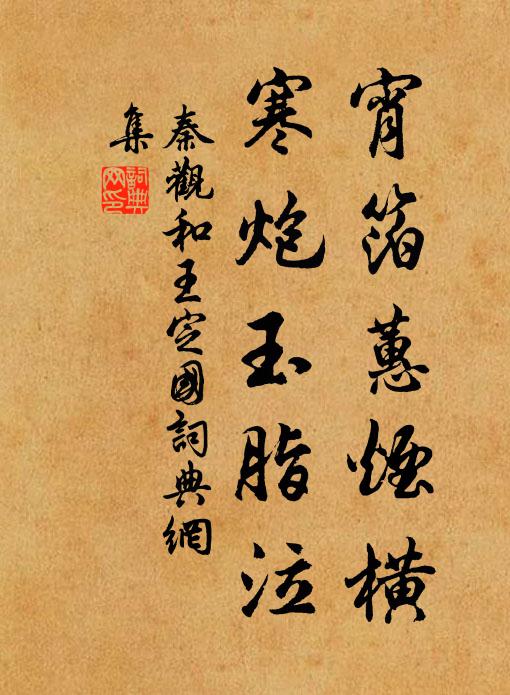 宵箔蕙煙橫
寒炮玉脂泣
秦觀和王定國詞典網
集
詞典網印